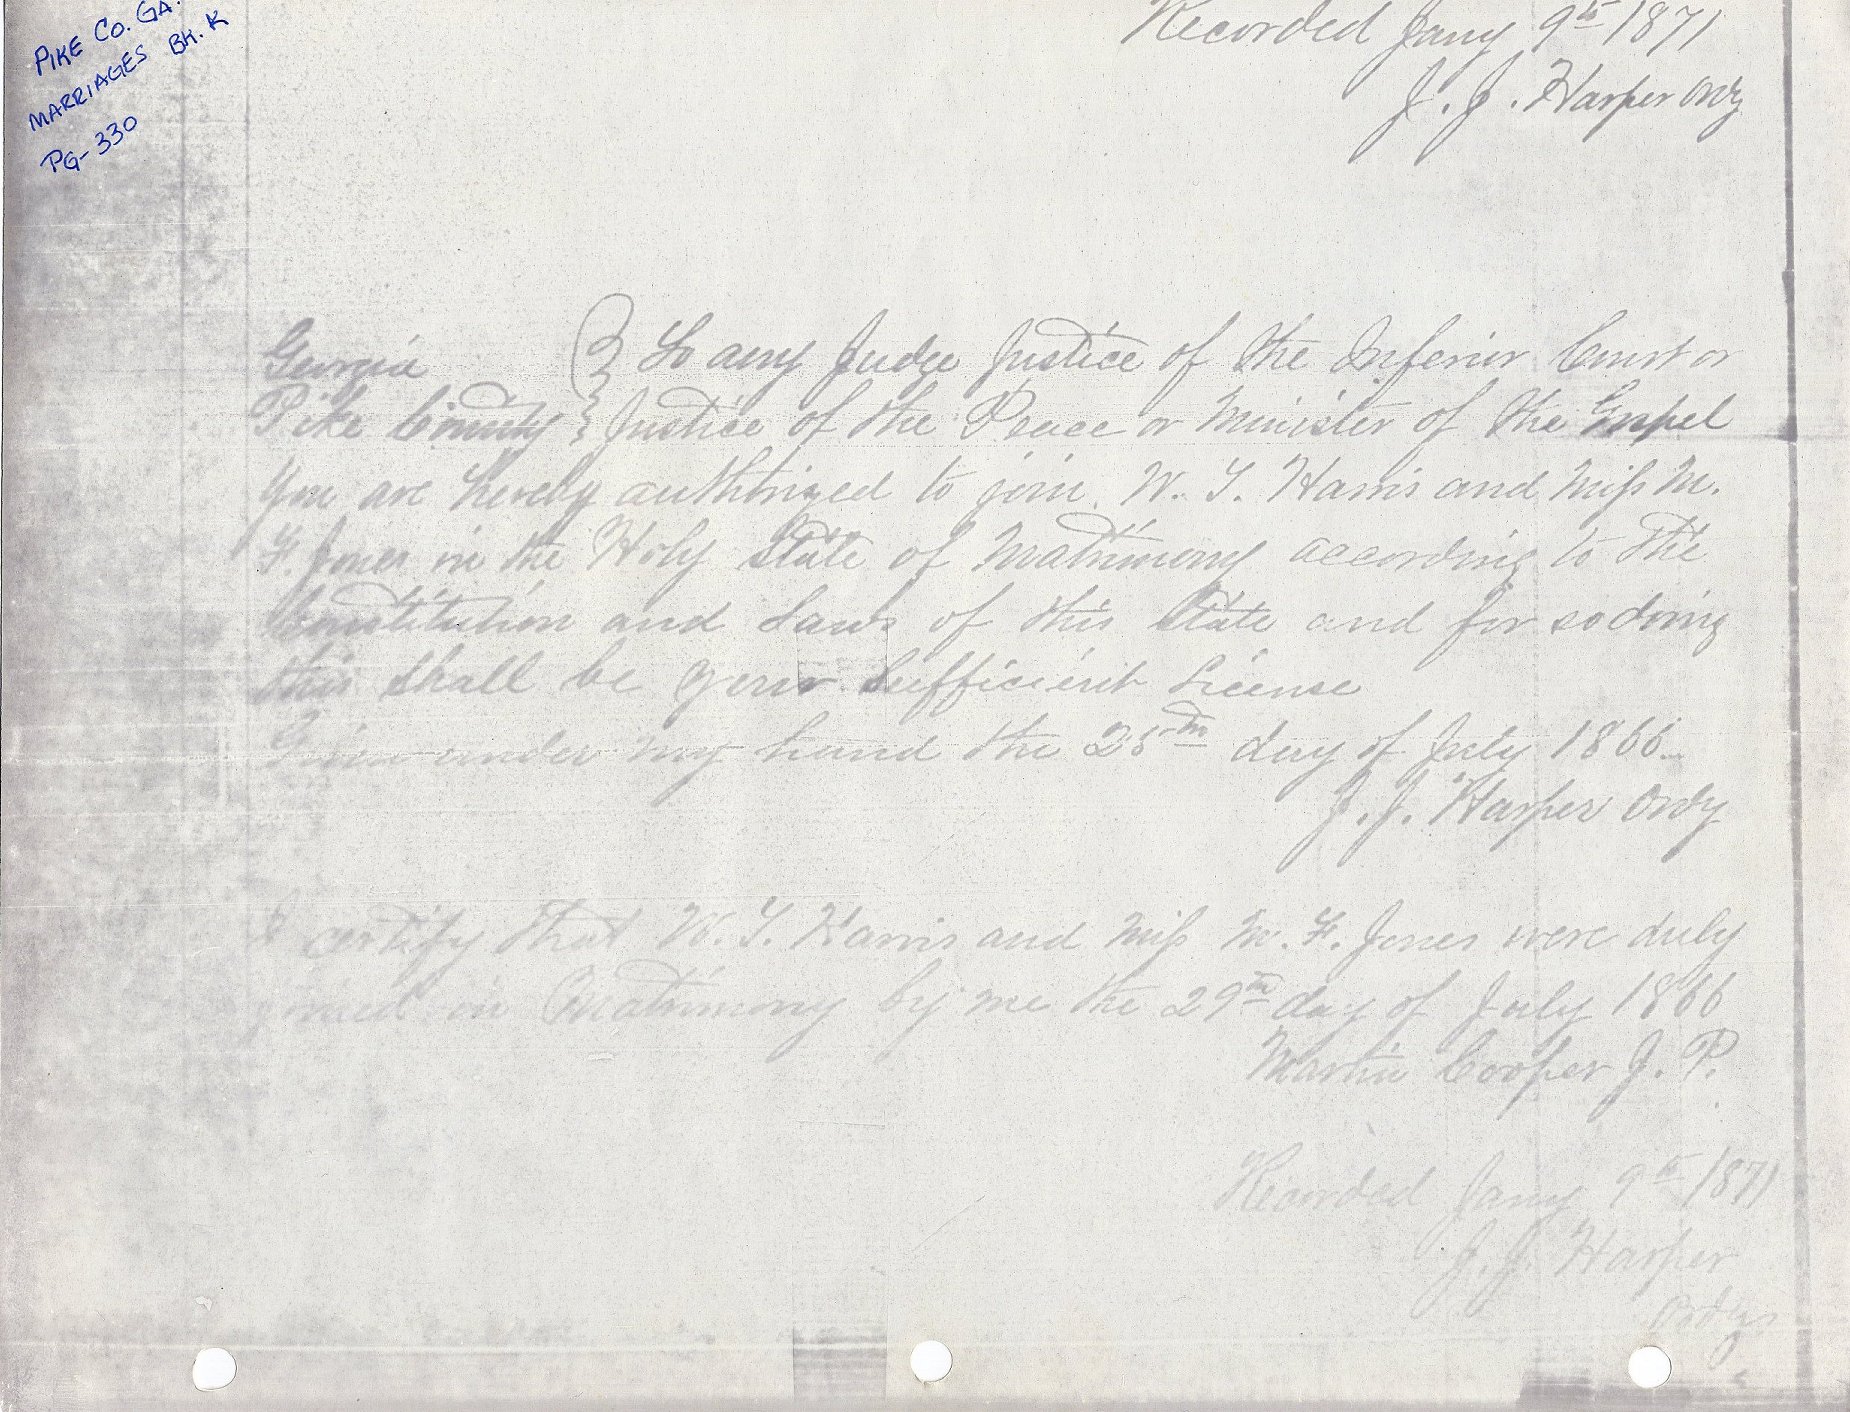 PIKE CO. GA.
MARRIAGES BK. K
PG- 330
Recorded Jany 9th 1871
J. J. Harper Ordy
Georgia } To any Judge Justice of the Inferior Court or
Pike County } Justice of the Peace or Minister of the Gospel
You are hereby authorized to join W. T. Harris and Miss M.
F. Jones in the Holy State of Matrimony according to the
Constitution and Laws of this State and for so doing
this shall be your Sufficient License
Given under my hand the 25th day of July 1866
J. J. Harper Ordy
I certify that W. T. Harris and Miss M. F. Jones were duly
joined in Matrimony by me the 29th day of July 1866
Martin Cooper J. P.
Recorded Jany 9th 1871
J. J. Harper
Ordy